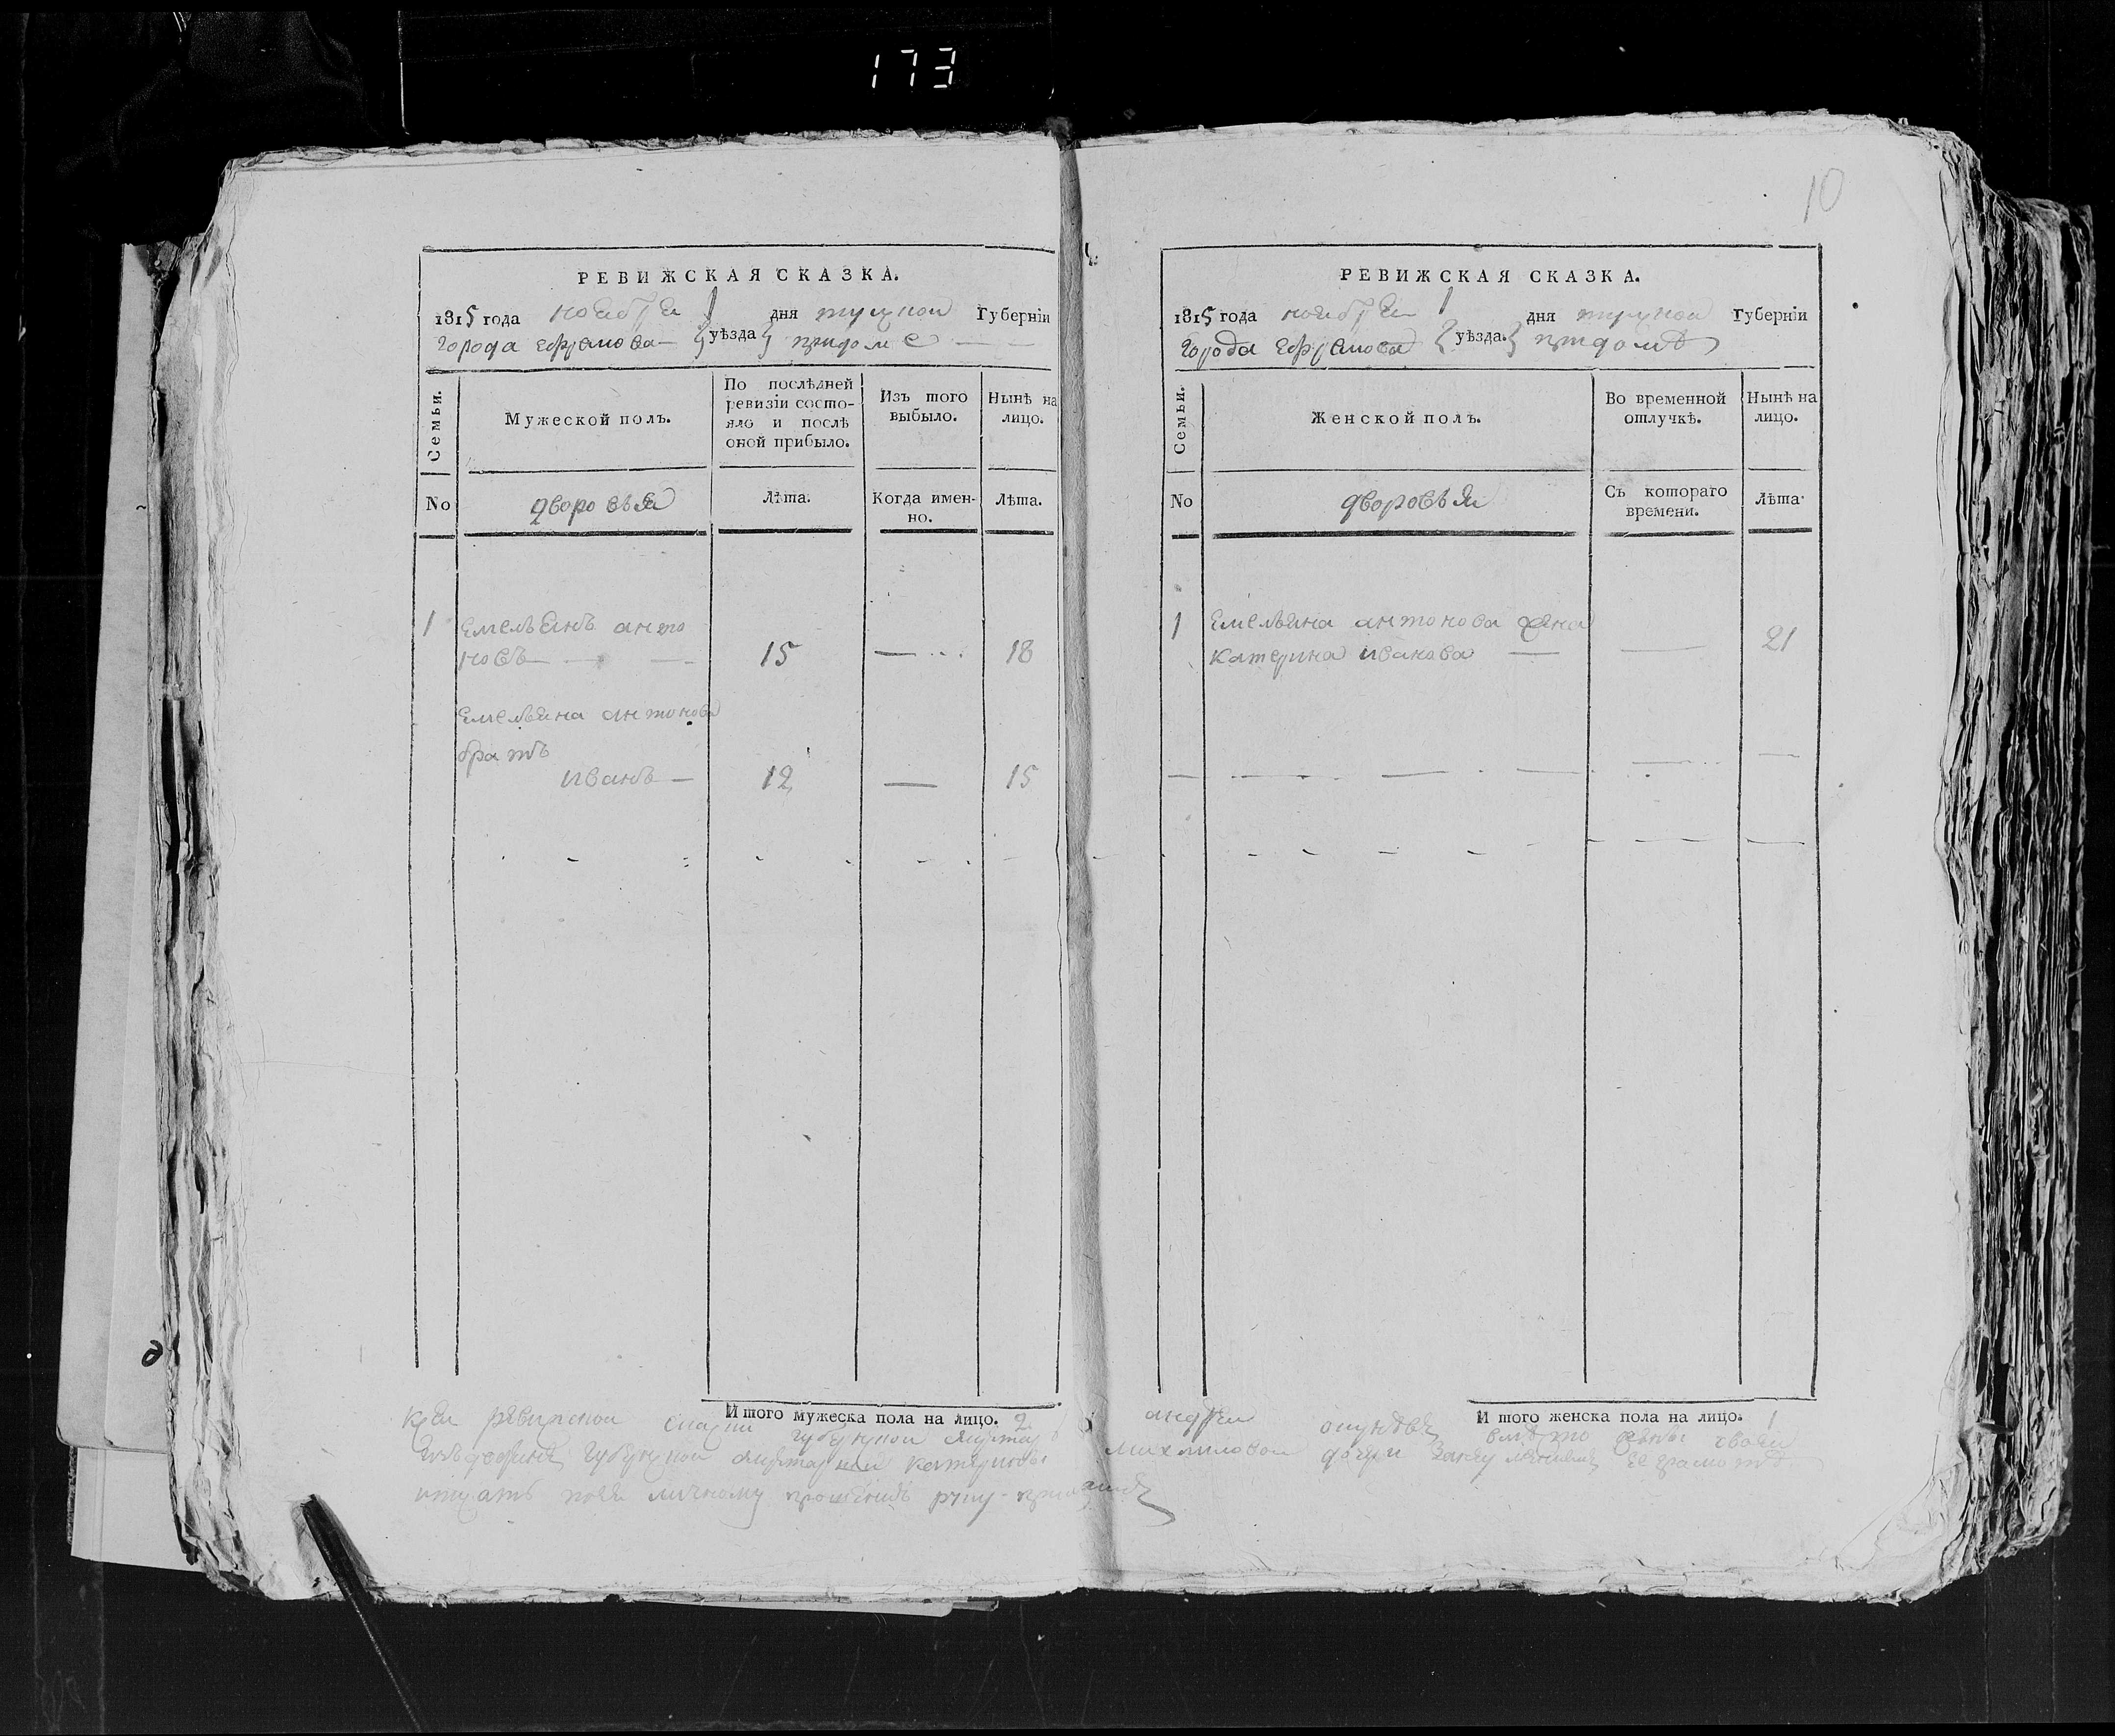 173
10
РЕВИЖСКАЯ СКАЗКА.
1815 года ноября 1 дня тулской Губерніи
города ефремова уѣзда придоме
Семьи.
Мужеской полъ.
По послѣдней ревизіи состояло и послѣ оной прибыло.
Изъ того выбыло.
Нынѣ на лицо.
No
дворовыя
Лѣта.
Когда именно.
Лѣта.
1 емельянъ анто
новъ 15 18
емельяна антонова
братъ
иванъ 12 15
Итого мужеска пола на лицо. 2
РЕВИЖСКАЯ СКАЗКА.
1815 года ноября 1 дня тулской Губерніи
города ефремова уѣзда. придомѣ
Семьи.
Женской полъ.
Во временной отлучкѣ.
Нынѣ на лицо.
No
дворовыя
Съ котораго времени.
Лѣта
1 емельяна антонова жена
катерина иванова 21
И того женска пола на лицо. 1
ревижской
катерины михаиловой дочери
личному прошению руку